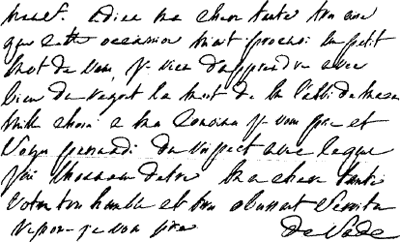 adieu ma chere tante ton
que cette occasion m'ait procuré un petit
mot de vous, je viens d'apprendre avec
bien du regret la mort de
mille choses a ma cousine je vous prie et
soyez persuadé du respect avec lequel
j'ai l'honneur detre ma chere tante
votre tres humble et tres obeissant serviteur
reponse je vous prie de Sade